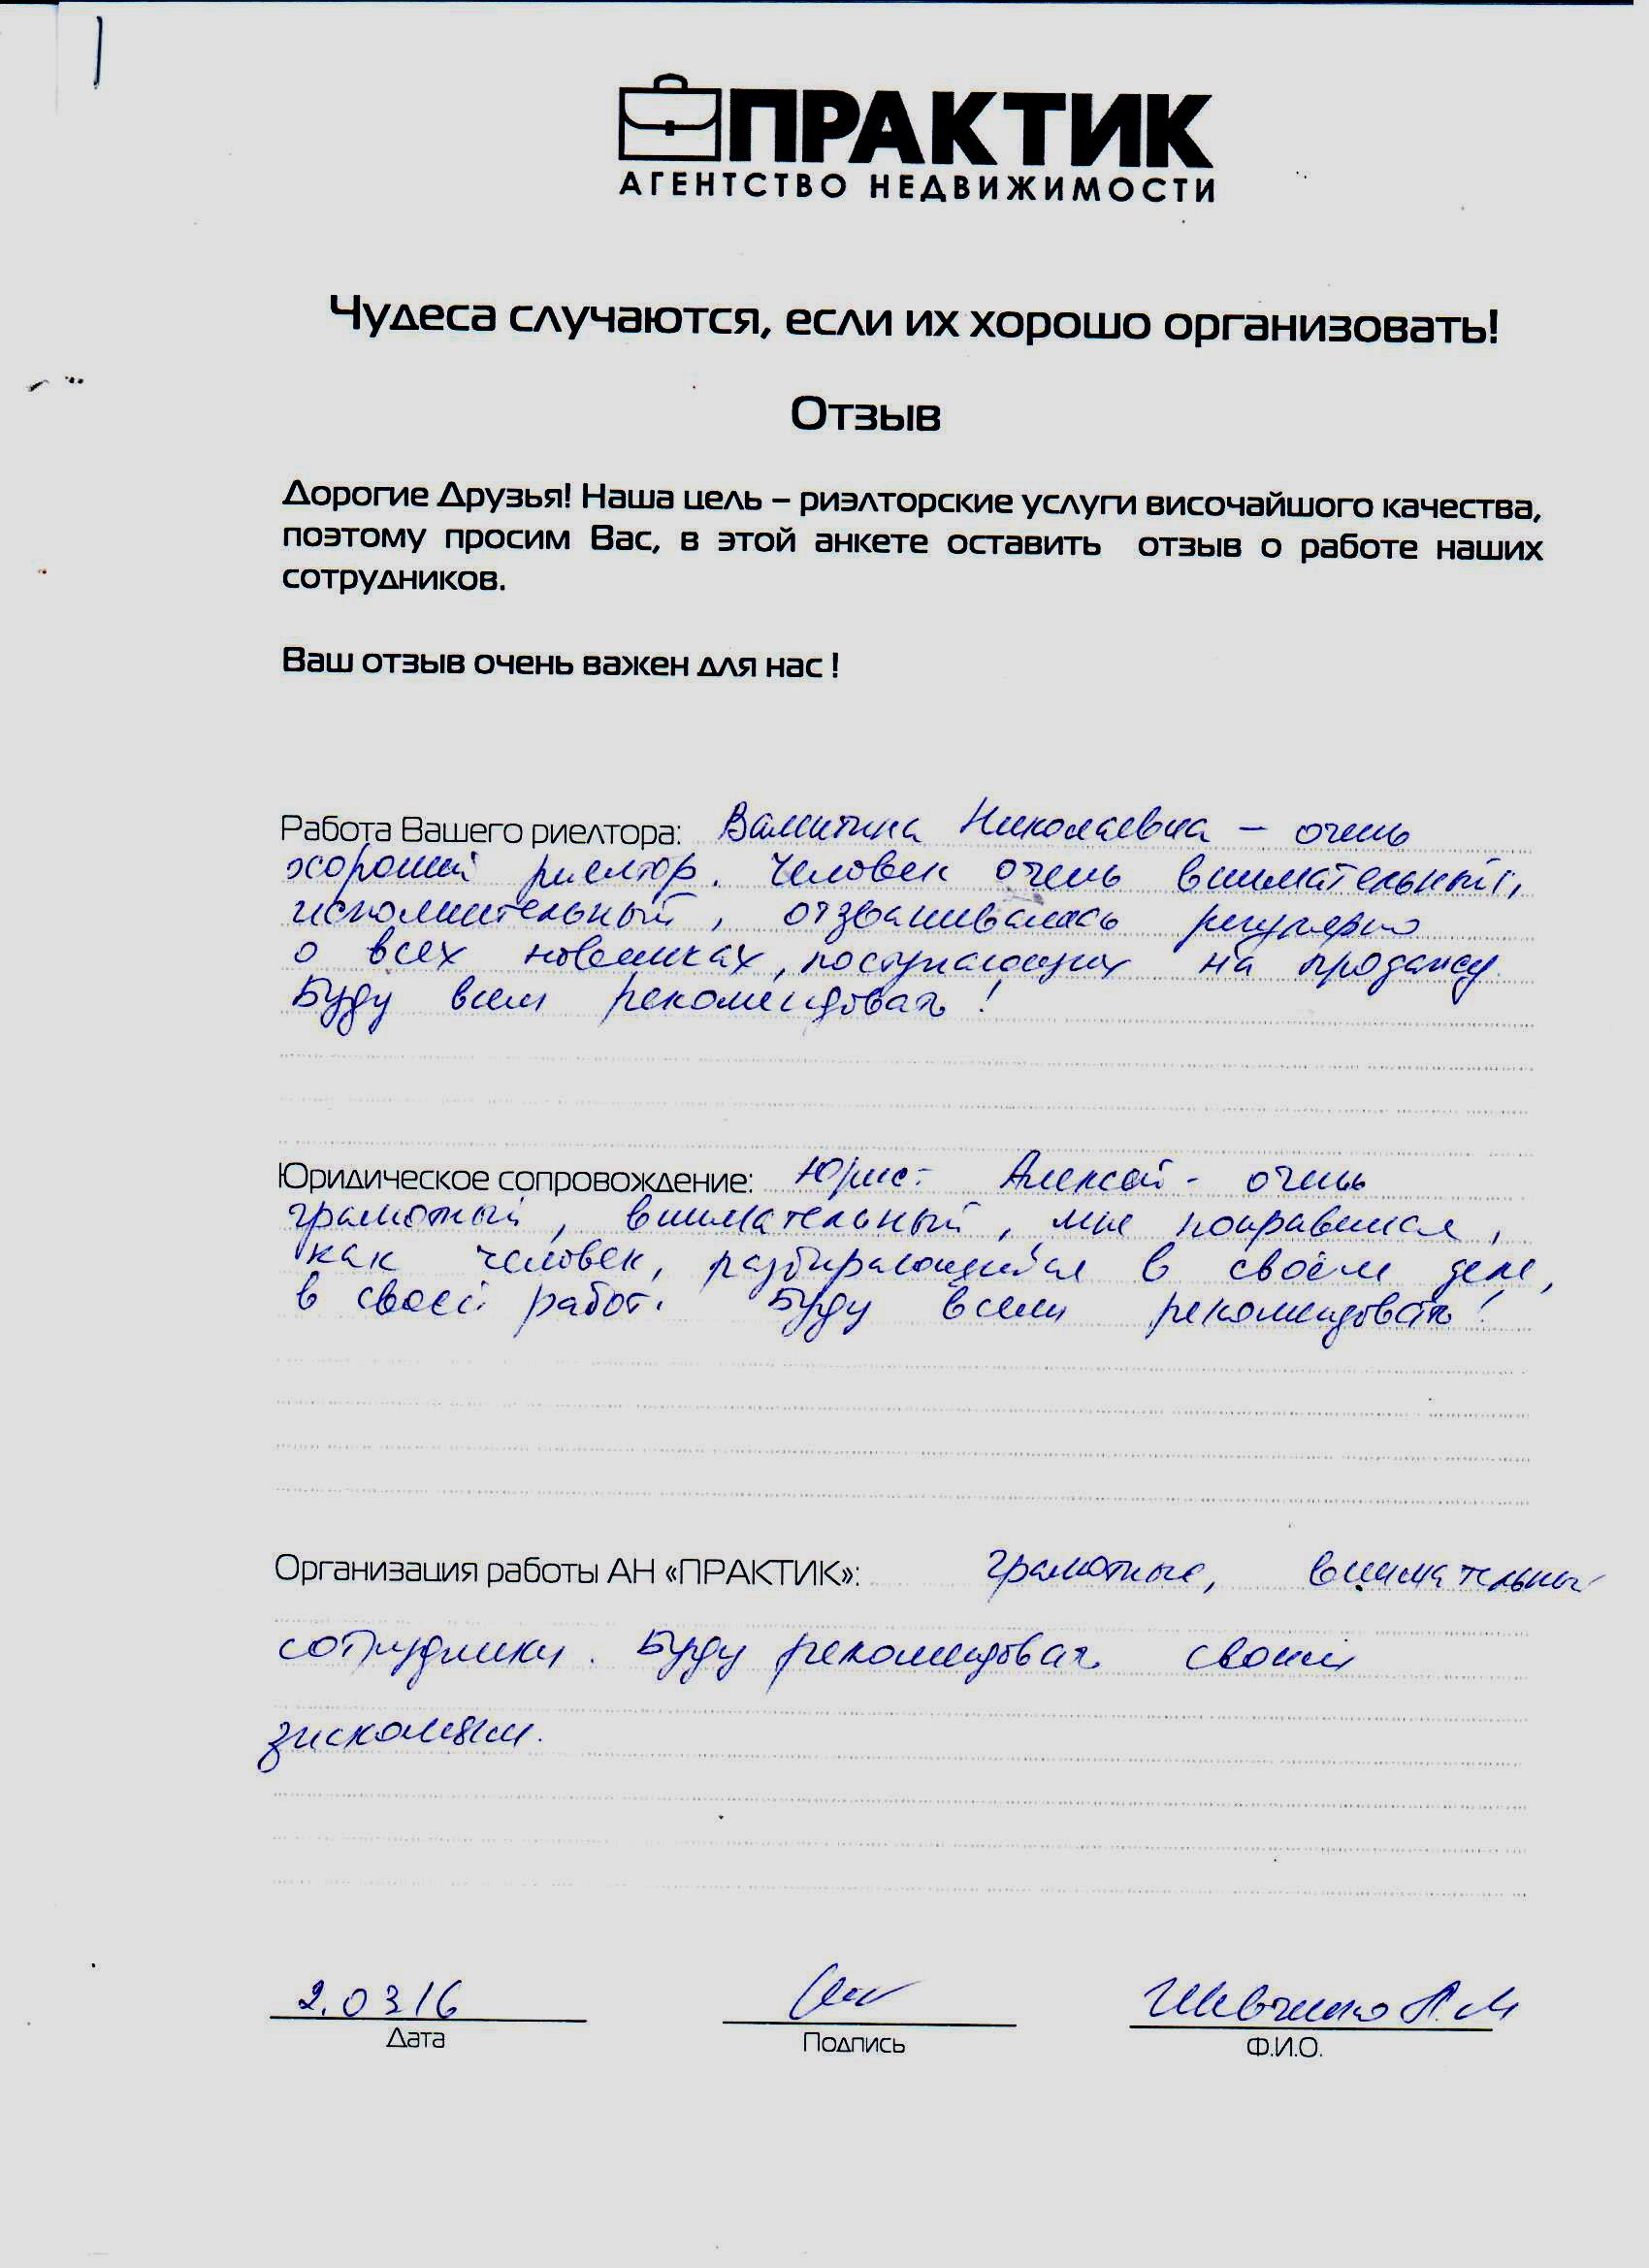 ПРАКТИК
АГЕНТСТВО НЕДВИЖИМОСТИ
Чудеса случаются, если их хорошо организовать!
Отзыв
Дорогие Друзья! Наша цель – риэлторские услуги височайшого качества,
поэтому просим Вас, в этой анкете оставить отзыв о работе наших
сотрудников.
Ваш отзыв очень важен для нас !
Работа Вашего риелтора: Валентина Николаевна – очень
хороший риелтор. Человек очень внимательный,
исполнительный, отзванивалась регулярно
о всех новинках, поступающих на продажу.
Буду всем рекомендовать !
Юридическое сопровождение: Юрист Алексей - очень
грамотный, внимательный, мне понравился,
как человек, разбирающийся в своём деле,
в своей работе. Буду всем рекомендовать !
Организация работы АН «ПРАКТИК»: грамотные, внимательные
сотрудники. Буду рекомендовать своим
знакомым.
2.0316
Дата
Подпись
Ф.И.О.